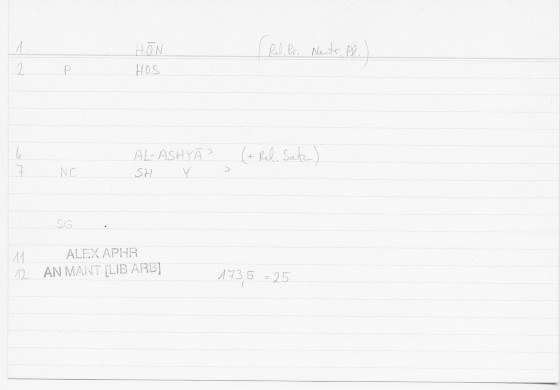 1 HŌN (Rel.Pr. Neutr. Pl.)
2 P HOS
6 AL-ASHYĀʾ (+ Rel. Satz)
7 NC SH Y ʾ
SG .
11 ALEX APHR
12 AN MANT [LIB ARB] 173,5 = 25